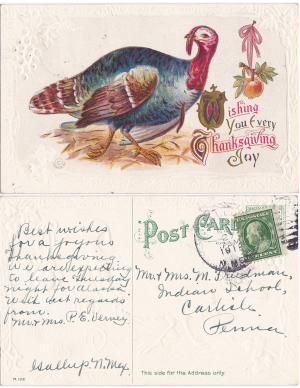 Wishing
You Every
Thanksgiving
Joy
POST CARD
Best wishes
for a joyous
Thanksgiving
We are expecting
to leave Tuesday
night for Alaska
With best regards
from
Mr & Mrs. P. E. Verney
Gallup N. Mex.
Mr & Mrs. M. Friedman,
Indian School,
Carlisle
Penna
This side for the Address only.